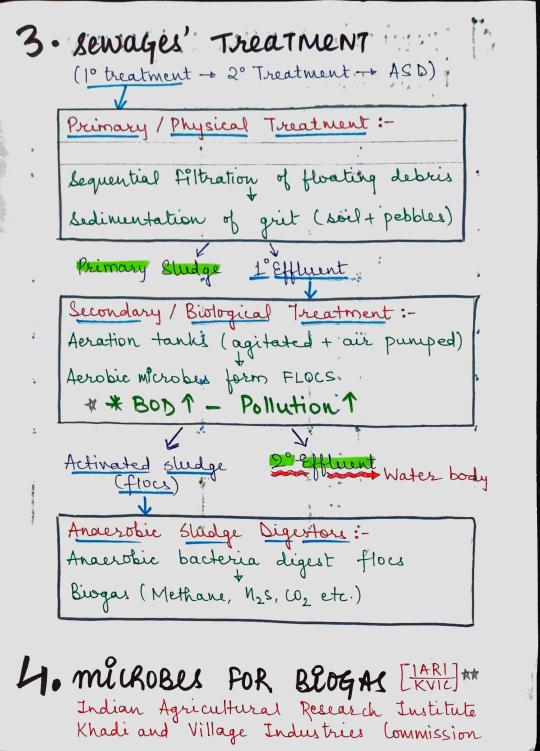 3. SEWAGES' TREATMENT
(1° treatment → 2° Treatment → ASD)
Primary / Physical Treatment :-
Sequential Filtration of floating debris
↓
Sedimentation of grit (soil + pebbles)
Primary Sludge 1° Effluent
Secondary / Biological Treatment :-
Aeration tanks (agitated + air pumped)
↓
Aerobic microbes form FLOCS.
** BOD ↑ - Pollution ↑
Activated sludge 2° Effluent → Water body
(flocs)
Anaerobic Sludge Digestors :-
Anaerobic bacteria digest flocs
↓
Biogas (Methane, H2S, CO2 etc.)
4. MICROBES FOR BIOGAS [IARI/KVIC]**
Indian Agricultural Research Institute
Khadi and Village Industries Commission